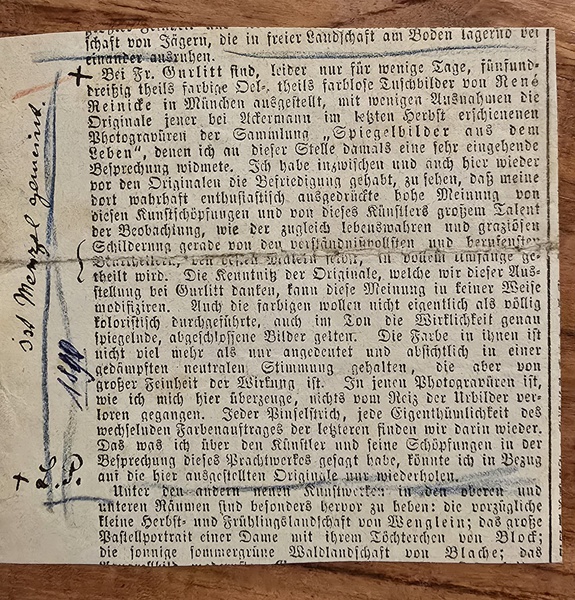 schaft von Jägern, die in freier Landschaft am Boden lagernd bei
einander ausruhen.
Bei Fr. Gurlitt sind, leider nur für wenige Tage, fünfund-
dreißig theils farbige Oel-, theils farblose Tuschbilder von René
Reinicke in München ausgestellt, mit wenigen Ausnahmen die
Originale jener bei Ackermann im letzten Herbst erschienenen
Photogravüren der Sammlung „Spiegelbilder aus dem
Leben“, denen ich an dieser Stelle damals eine sehr eingehende
Besprechung widmete. Ich habe inzwischen und auch hier wieder
vor den Originalen die Befriedigung gehabt, zu sehen, daß meine
dort wahrhaft enthusiastisch ausgedrückte hohe Meinung von
diesen Kunstschöpfungen und von dieses Künstlers großem Talent
der Beobachtung, wie der zugleich lebenswahren und graziösen
Schilderung gerade von den verständnißvollsten und berufensten
Beurtheilern, den selbst, in vollem Umfange ge-
theilt wird. Die Kenntniß der Originale, welche wir dieser Aus-
stellung bei Gurlitt danken, kann diese Meinung in keiner Weise
modifiziren. Auch die farbigen wollen nicht eigentlich als völlig
koloristisch durchgeführte, auch im Ton die Wirklichkeit genau
spiegelnde, abgeschlossene Bilder gelten. Die Farbe in ihnen ist
nicht viel mehr als nur angedeutet und absichtlich in einer
gedämpften neutralen Stimmung gehalten, die aber von
großer Feinheit der Wirkung ist. In jenen Photogravüren ist,
wie ich mich hier überzeuge, nichts vom Reiz der Urbilder ver-
loren gegangen. Jeder Pinselstrich, jede Eigenthümlichkeit des
wechselnden Farbenauftrages der letzteren finden wir darin wieder.
Das was ich über den Künstler und seine Schöpfungen in der
Besprechung dieses Prachtwerkes gesagt habe, könnte ich in Bezug
auf die hier ausgestellten Originale nur wiederholen.
Unter den andern neuen Kunstwerken in den oberen und
unteren Räumen sind besonders hervor zu heben: die vorzügliche
kleine Herbst- und Frühlingslandschaft von Wenglein; das große
Pastellportrait einer Dame mit ihrem Töchterchen von Block;
die sonnige sommergrüne Waldlandschaft von Blache; das
ist Menzel gemeint.
1890